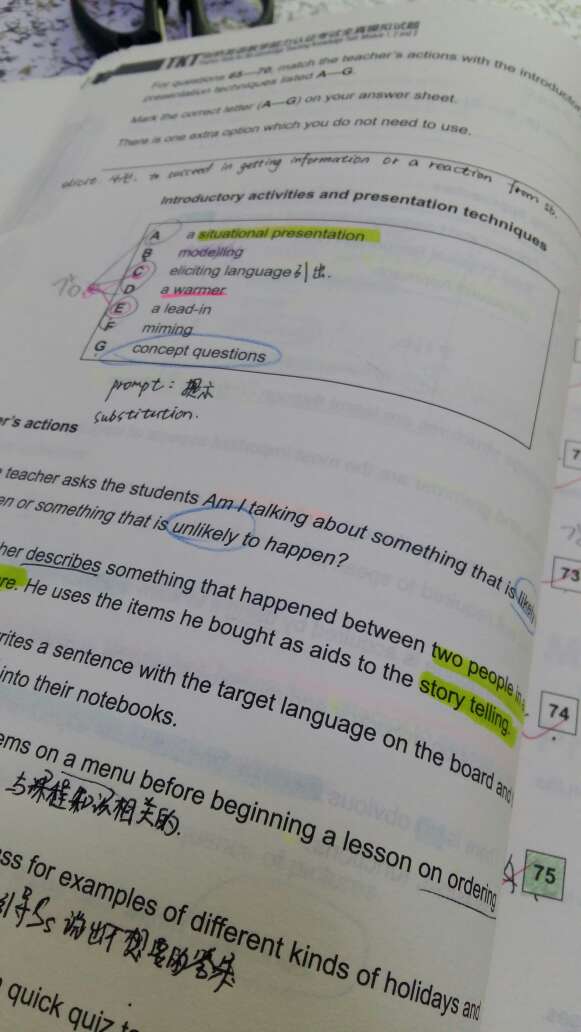 TKT
For questions 65—70, match the teacher's actions with the introductory
presentation techniques listed A—G.
Mark the correct letter (A—G) on your answer sheet.
There is one extra option which you do not need to use.
to succeed in getting information or a reaction from sb.
Introductory activities and presentation techniques
A a situational presentation
B modelling
C eliciting language 引出.
D a warmer
70
E a lead-in
F miming
G concept questions
prompt: 提示
substitution.
er's actions
teacher asks the students Am I talking about something that is likely
en or something that is unlikely to happen?
her describes something that happened between two people in a
re. He uses the items he bought as aids to the story telling.
rites a sentence with the target language on the board and
into their notebooks.
ems on a menu before beginning a lesson on ordering
与课程知识相关的.
ss for examples of different kinds of holidays and
引导Ss 说出
quick quiz to
73
74
75